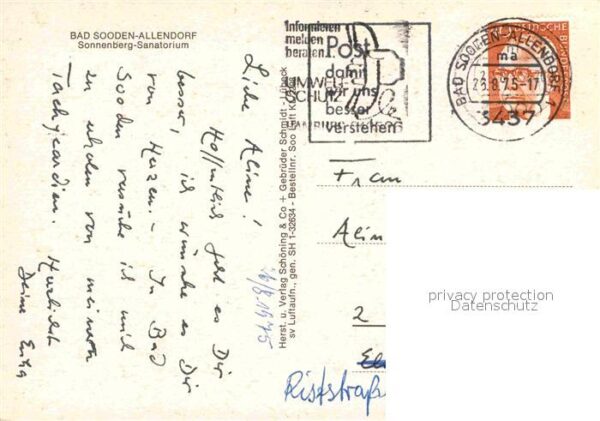 BAD SOODEN-ALLENDORF
Sonnenberg-Sanatorium
Liebe Aline!
Hoffentlich geht es Dir
besser, ich wünsche es Dir
von Herzen. - In Bad
Sooden versuche ich mich
zu erholen von meinen
Tachycardien. Herzlichst
Deine Erika
26/8.1975
Herst. u. Verlag Schöning & Co + Gebrüder Schmidt · Lübeck
sv Luftaufn., gen. SH 1-32634 - Bestellnr. Soo
Informieren
melden
beraten
Post
damit
wir uns
besser
verstehen
UMWELT
SCHUTZ
BAD SOODEN-ALLENDORF 1
ma
26.8.75-17
3437
DEUTSCHE
BUNDESPOST
Frau
Alin
2
Riststraß
privacy protection
Datenschutz